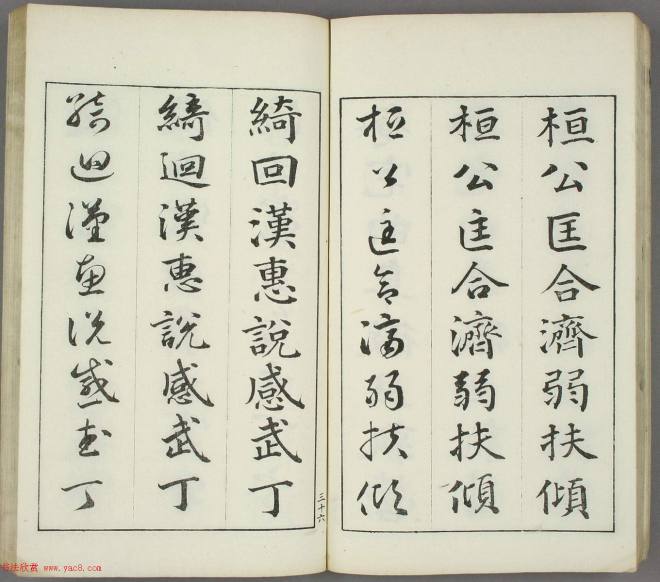 桓公匡合濟弱扶傾
桓公匡合濟弱扶傾
桓公匡合濟弱扶傾
三十六
綺回漢惠說感武丁
綺迴漢惠説感武丁
綺迴漢惠说感武丁
书法欣赏 www.yac8.com